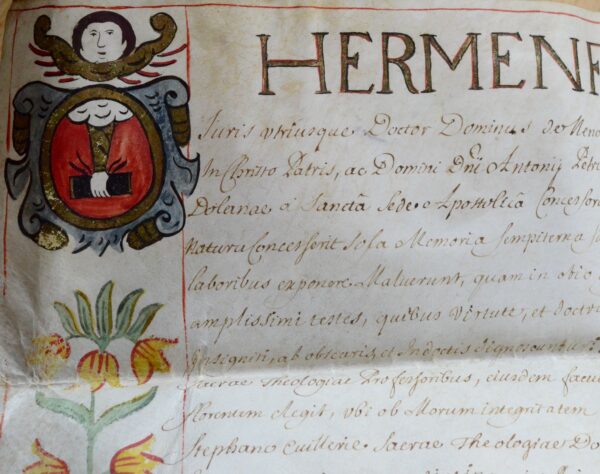 HERMENE
Juris Utriusque Doctor Dominus de Meno
In Christo Patris, ac Domini Dñi Antonij Petri
Dolanae à Sanctâ Sede Apostolicâ Concessor
natura Concesserit Sola Memoria Sempiterna
laboribus exponere Maluerunt, quam in otio
amplissimi testes, quibus Virtute, et doctri
Insigniti, ab obscuris, et Indoctis dignoscuntur
Sacrae Theologiae Professoribus, eiusdem facul
florenum elegit, ubi ob Morum integritatem
Stephano Cuillerie Sacrae Theologiae Do